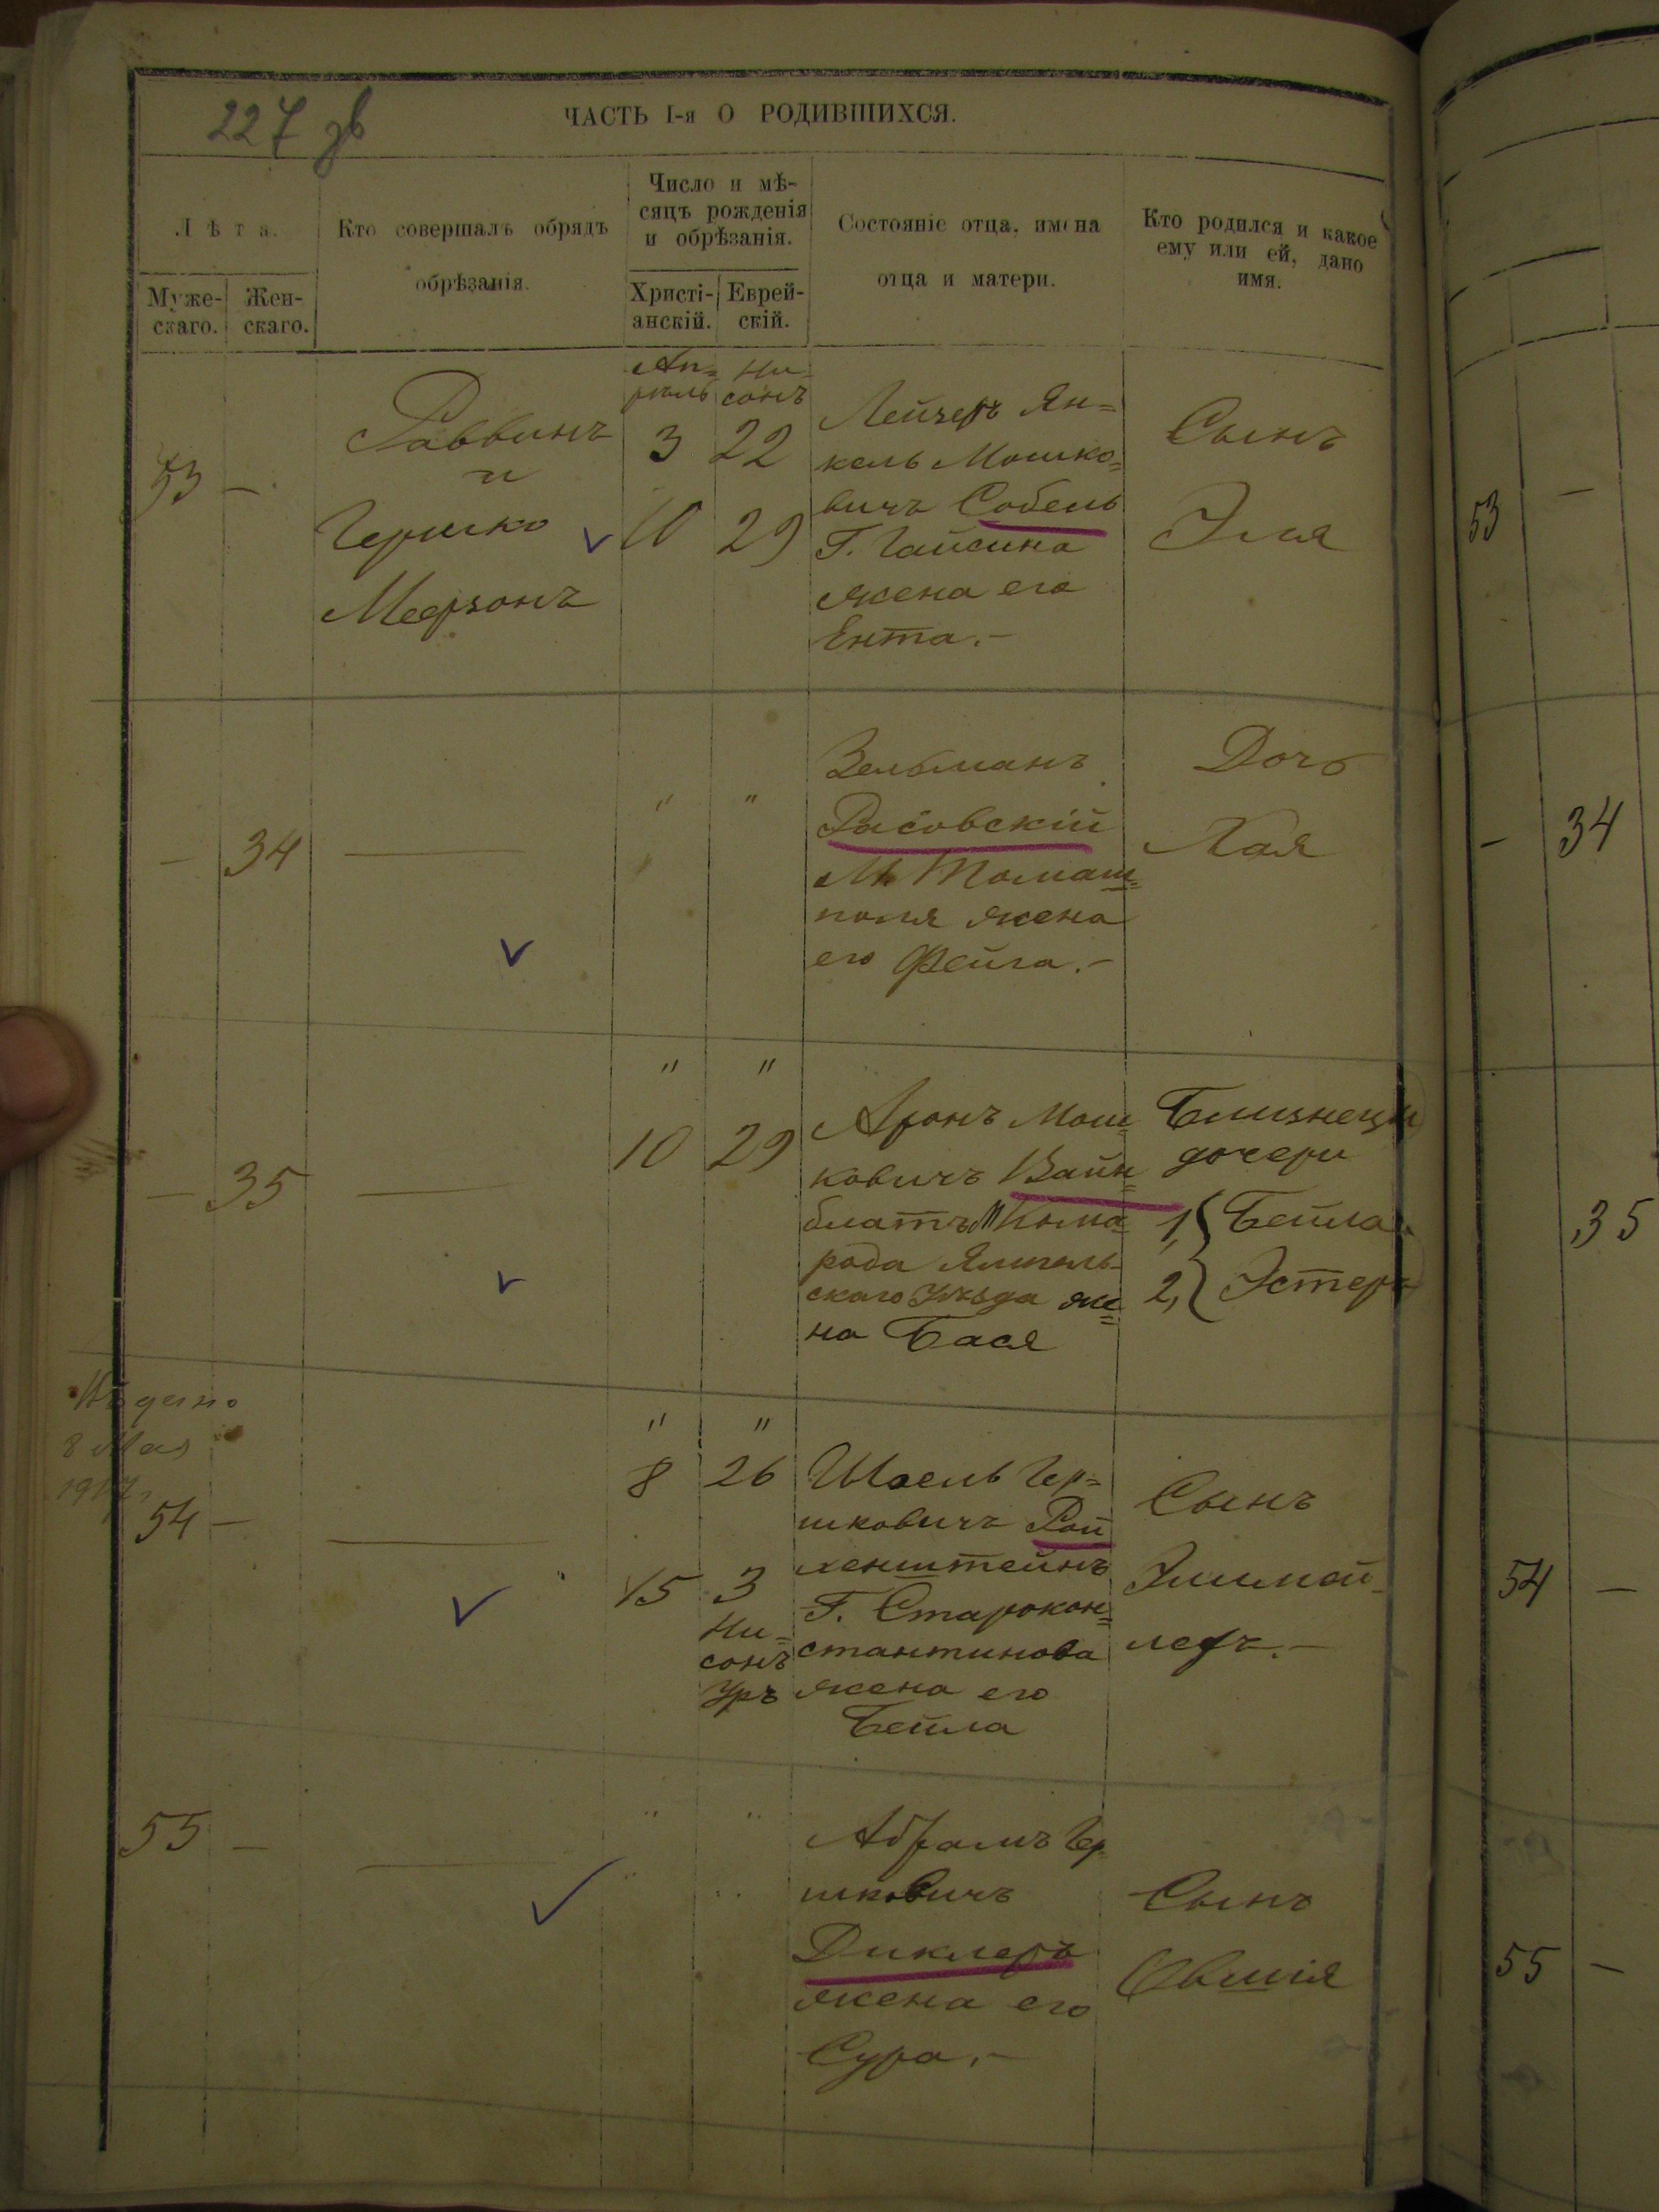 227 зв
ЧАСТЬ I-я О РОДИВШИХСЯ.
Лѣта.
Муже-
скаго.
Жен-
скаго.
Кто совершалъ обрядъ
обрѣзанія.
Число и мѣ-
сяцъ рожденія
и обрѣзанія.
Христі-
анскій.
Еврей-
скій.
Состояніе отца, имена
отца и матери.
Кто родился и какое
ему или ей, дано
имя.
53 —
Раввинъ
и
Гершко
Меерзонъ
Ап=
рѣль
3
10
Ни=
сонъ
22
29
Лейзеръ Ян=
кель Мошко=
вичъ Собель
Г. Гайсина
жена его
Ента.—
Сынъ
Эля
— 34
"
"
Зельманъ
Расовскій
М. Томаш=
поля жена
его Фейга.—
Дочь
Хая
— 35
"
10
"
29
Аронъ Мош=
ковичъ Вайн=
блатъ
рода Ямполь-
скаго Уѣзда же=
на Бася
Близнецы
дочери
1,{ Бейла
2,} Эстеръ
8 Мая
54 —
"
8
15
"
26
3
Ни=
сонъ
Уръ
Шоель Гер=
шковичъ Рой
хенштейнъ
Г. Старокон=
стантинова
жена его
Бейла
Сынъ
55 —
"
"
Абрамъ Гер
шковичъ
Диклеръ
жена его
Сура.—
Сынъ
Овшія
53 —
— 34
35
54 —
55 —